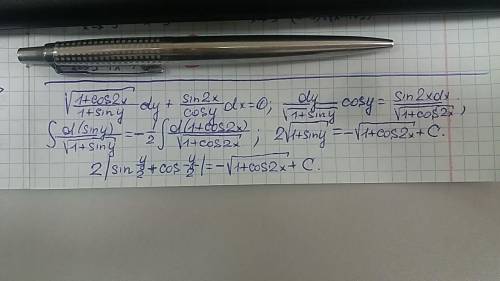 √(1+cos2x)/(1+siny) dy + sin2x/cosy dx = 0; dy/√(1+siny) cosy = sin2xdx/√(1+cos2x),
∫ d(siny)/√(1+siny) = -1/2 ∫ d(1+cos2x)/√(1+cos2x); 2√(1+siny) = -√(1+cos2x) + C.
2|sin y/2 + cos y/2| = -√(1+cos2x) + C.